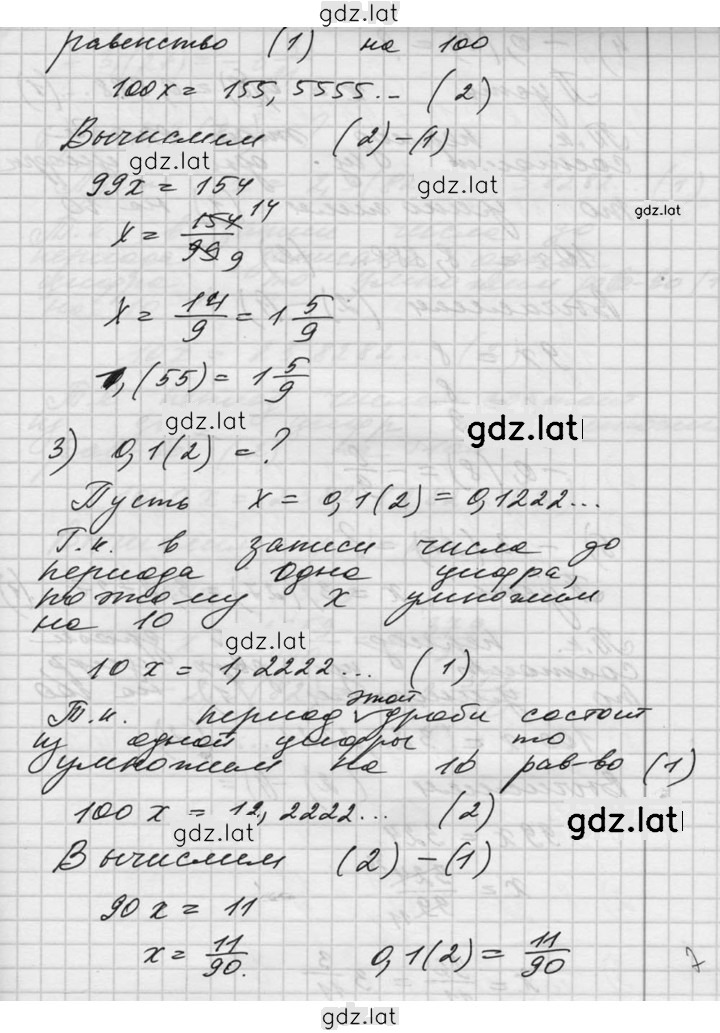 gdz.lat
равенство (1) на 100
100x = 155,5555... (2)
Вычислим (2)-(1)
gdz.lat
gdz.lat
99x = 154
gdz.lat
x = 154/99 14 9
x = 14/9 = 1 5/9
1,(55) = 1 5/9
gdz.lat
gdz.lat
3) 0,1(2) = ?
Пусть x = 0,1(2) = 0,1222...
Т.к. в записи числа до
периода одна цифра,
поэтому x умножим
на 10
gdz.lat
10x = 1,2222... (1)
этой
Т.к. период дроби состоит
из одной цифры то
умножим на 10 рав-во (1)
100x = 12,2222... (2)
gdz.lat
gdz.lat
Вычислим (2)-(1)
90x = 11
x = 11/90. 0,1(2) = 11/90
7
gdz.lat